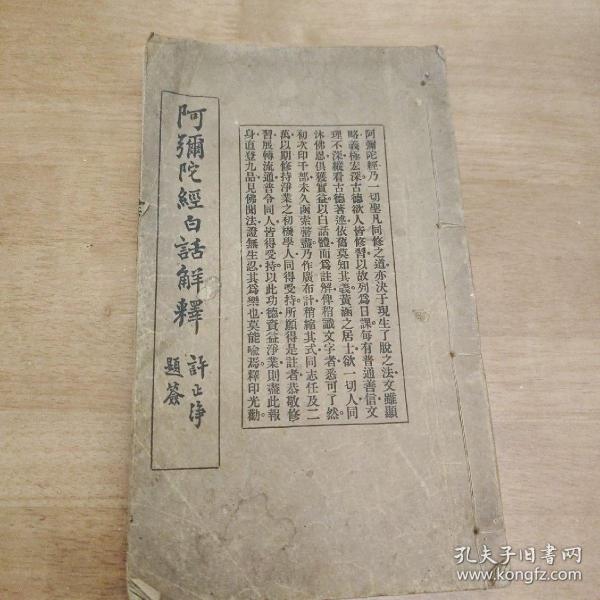 阿彌陀經白話解釋
許止淨
題簽
阿彌陀經乃一切聖凡同修之道亦決于現生了脫之法文雖顯
略義極宏深古德欲人皆修習以故列爲日課每有普通善信文
理不深縱看古德著述依舊莫知其義黃涵之居士欲一切人同
沐佛恩俱獲實益以白話體而爲註解俾稍識文字者悉可了然
初次印千部未久函索罄盡乃作廣布計稍縮其式同志任及二
萬以期修持淨業之初機學人同得受持所願得是註者恭敬修
習展轉流通普令同人皆得受持以此功德資益淨業則盡此報
身直登九品見佛聞法證無生忍其爲樂也莫能喻焉釋印光勸
孔夫子旧書网
www.kongfz.com